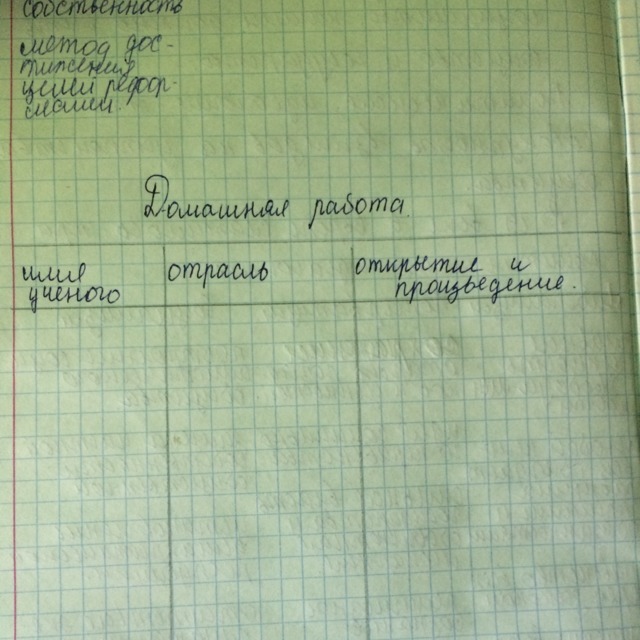 собственность
метод дос-
тижения
целей рефор-
мации.
Домашная работа.
имя
ученого
отрасль
открытие и
произведение.